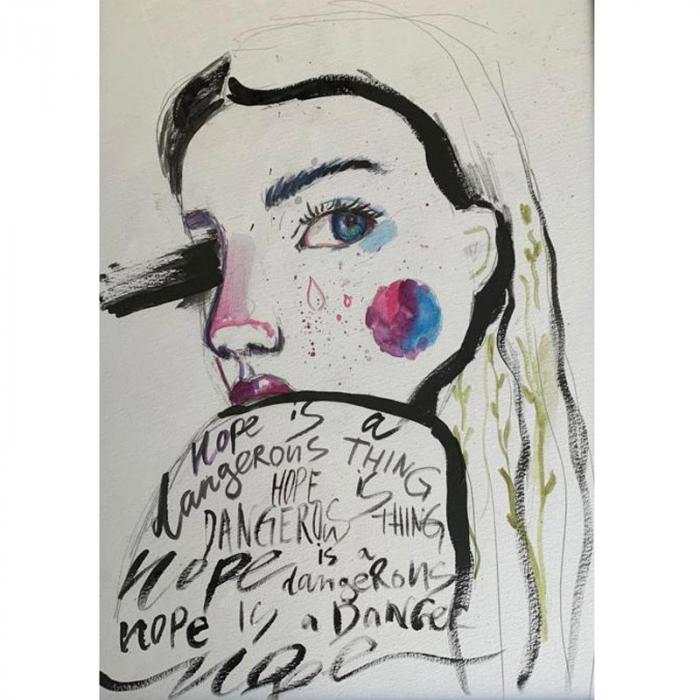 Hope is a
dangerous THING
HOPE IS
DANGEROUS THING
Hope is a dangerous
HOPE IS a DANGER
HOPE